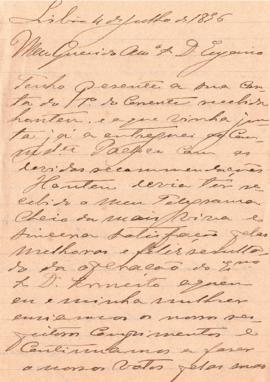 Lisboa 4 de Julho de 1896
Meu Querido Amº Sr D. Eugenio
Tenho presente a sua
carta do 1º do Corrente recebida
hontem, e a que vinha
já a entreguei
com as
devidas recommendações
Hontem devia ter re
cebido o meu Telegrama
cheio da mais viva e
sincera satisfação pelas
melhoras e feliz resulta
do da operação do
Sr D. Ernesto a quem
eu e minha mulher
enviamos os nossos
Comprimentos e
Continuamos a fazer
os nossos votos pelas suas